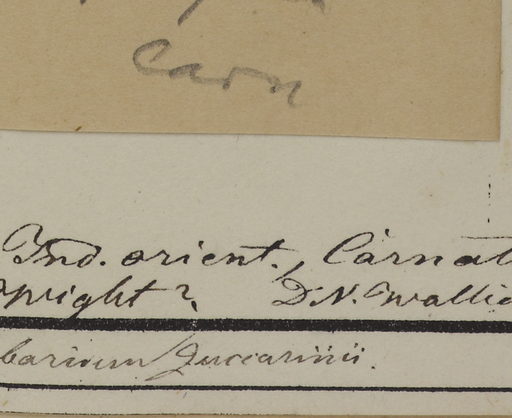 Carn
Ind. orient. Carnat
Wight? D. N. Wallic
barium Zuccarinii.